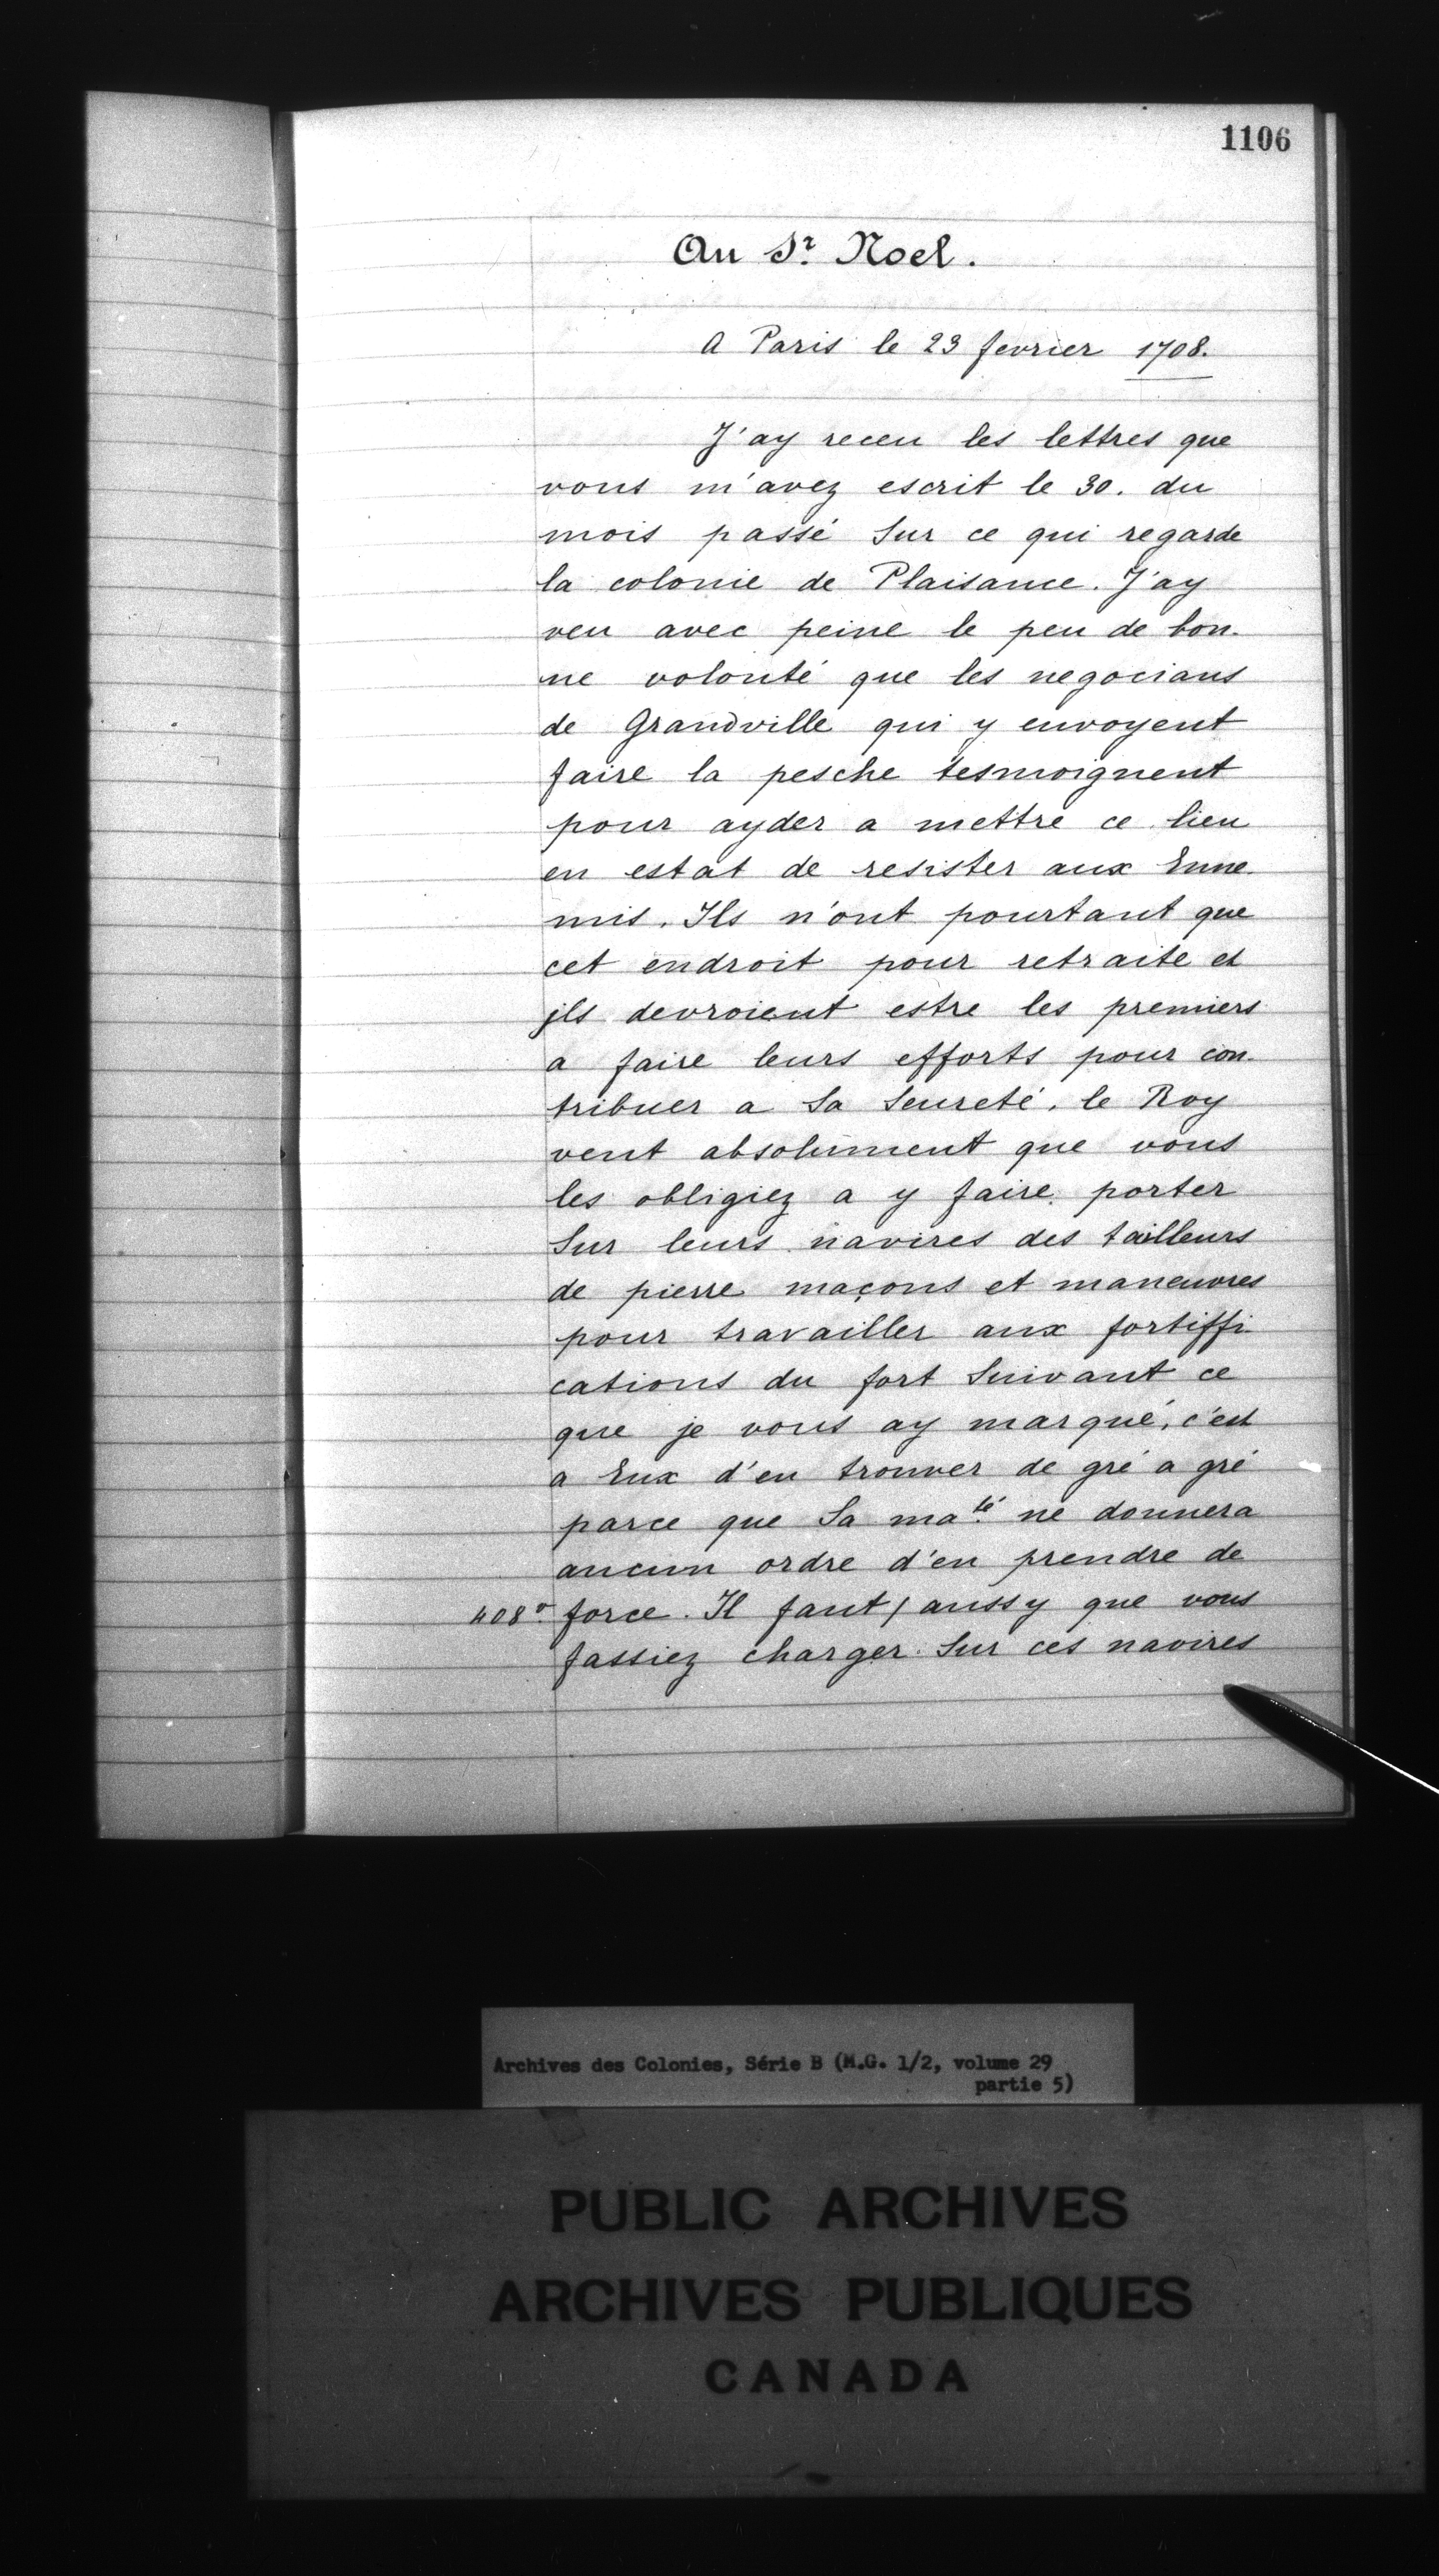 1106
Au Sr. Noel.
A Paris le 23 fevrier 1708.
J'ay receu les lettres que
vous m'avez escrit le 30. du
mois passé Sur ce qui regarde
la colonie de Plaisance. J'ay
veu avec peine le peu de bon-
ne volonté que les negocians
de Grandville qui y envoyent
faire la pesche tesmoignent
pour ayder a mettre ce lieu
en estat de resister aux Enne-
mis. Ils n'ont pourtant que
cet endroit pour retraite et
ils devroient estre les premiers
a faire leurs efforts pour con-
tribuer a Sa Seureté. le Roy
veut absolument que vous
les obligiez a y faire porter
Sur leurs navires des tailleurs
de pierre maçons et maneuvres
pour travailler aux fortiffi-
cations du fort Suivant ce
que je vous ay marqué, c'est
a Eux d'en trouver de gré a gré
parce que Sa maté. ne donnera
aucun ordre d'en prendre de
408v force. Il faut / aussy que vous
fassiez charger Sur ces navires
Archives des Colonies, Série B (M.G. 1/2, volume 29
partie 5)
PUBLIC ARCHIVES
ARCHIVES PUBLIQUES
CANADA